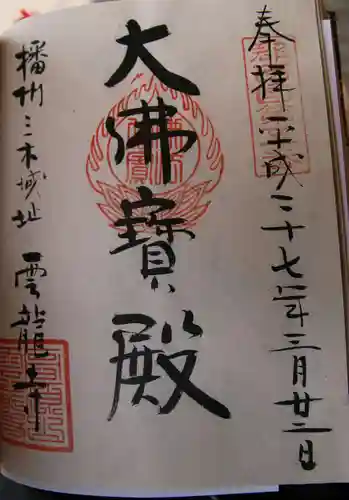 奉拝 平成二十七年三月廿二日
大佛寳殿
播州三木城址 雲龍寺